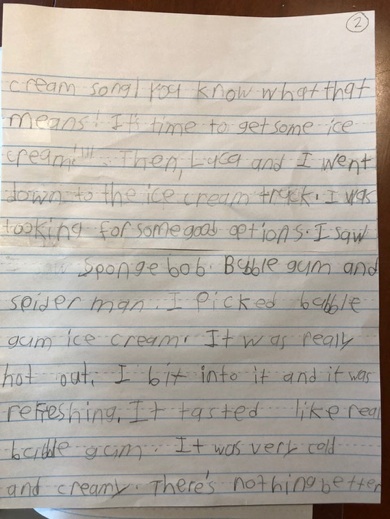 2
cream song! You know what that
means! It's time to get some ice
cream!"" Then, Luca and I went
down to the ice cream truck. I was
looking for some good options. I saw
Spongebob. Bubble gum and
spider man. I picked bubble
gum ice cream. It was really
hot out. I bit into it and it was
refreshing. It tasted like real
bubble gum. It was very cold
and creamy. There's nothing better